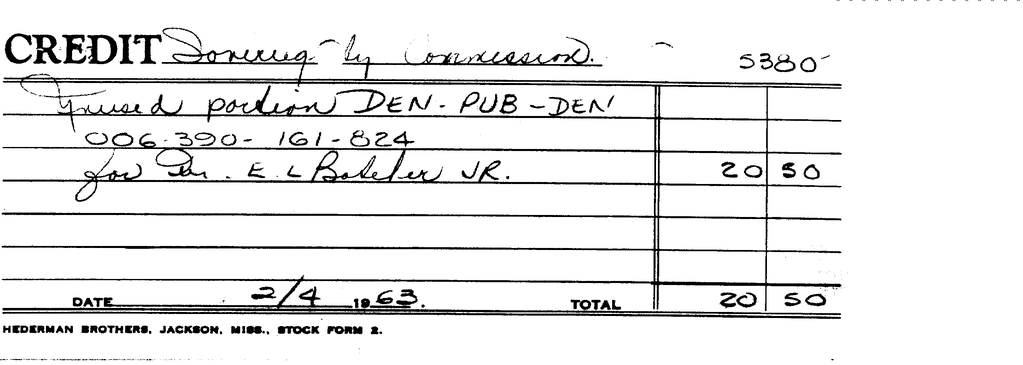 CREDIT Sovereignty Commission. 5380
Unused portion DEN - PUB - DEN
006-390- 161-824
for Mr. E. L Boteler JR. 20 50
DATE 2/4 1963. TOTAL 20 50
HEDERMAN BROTHERS, JACKSON, MISS., STOCK FORM 2.